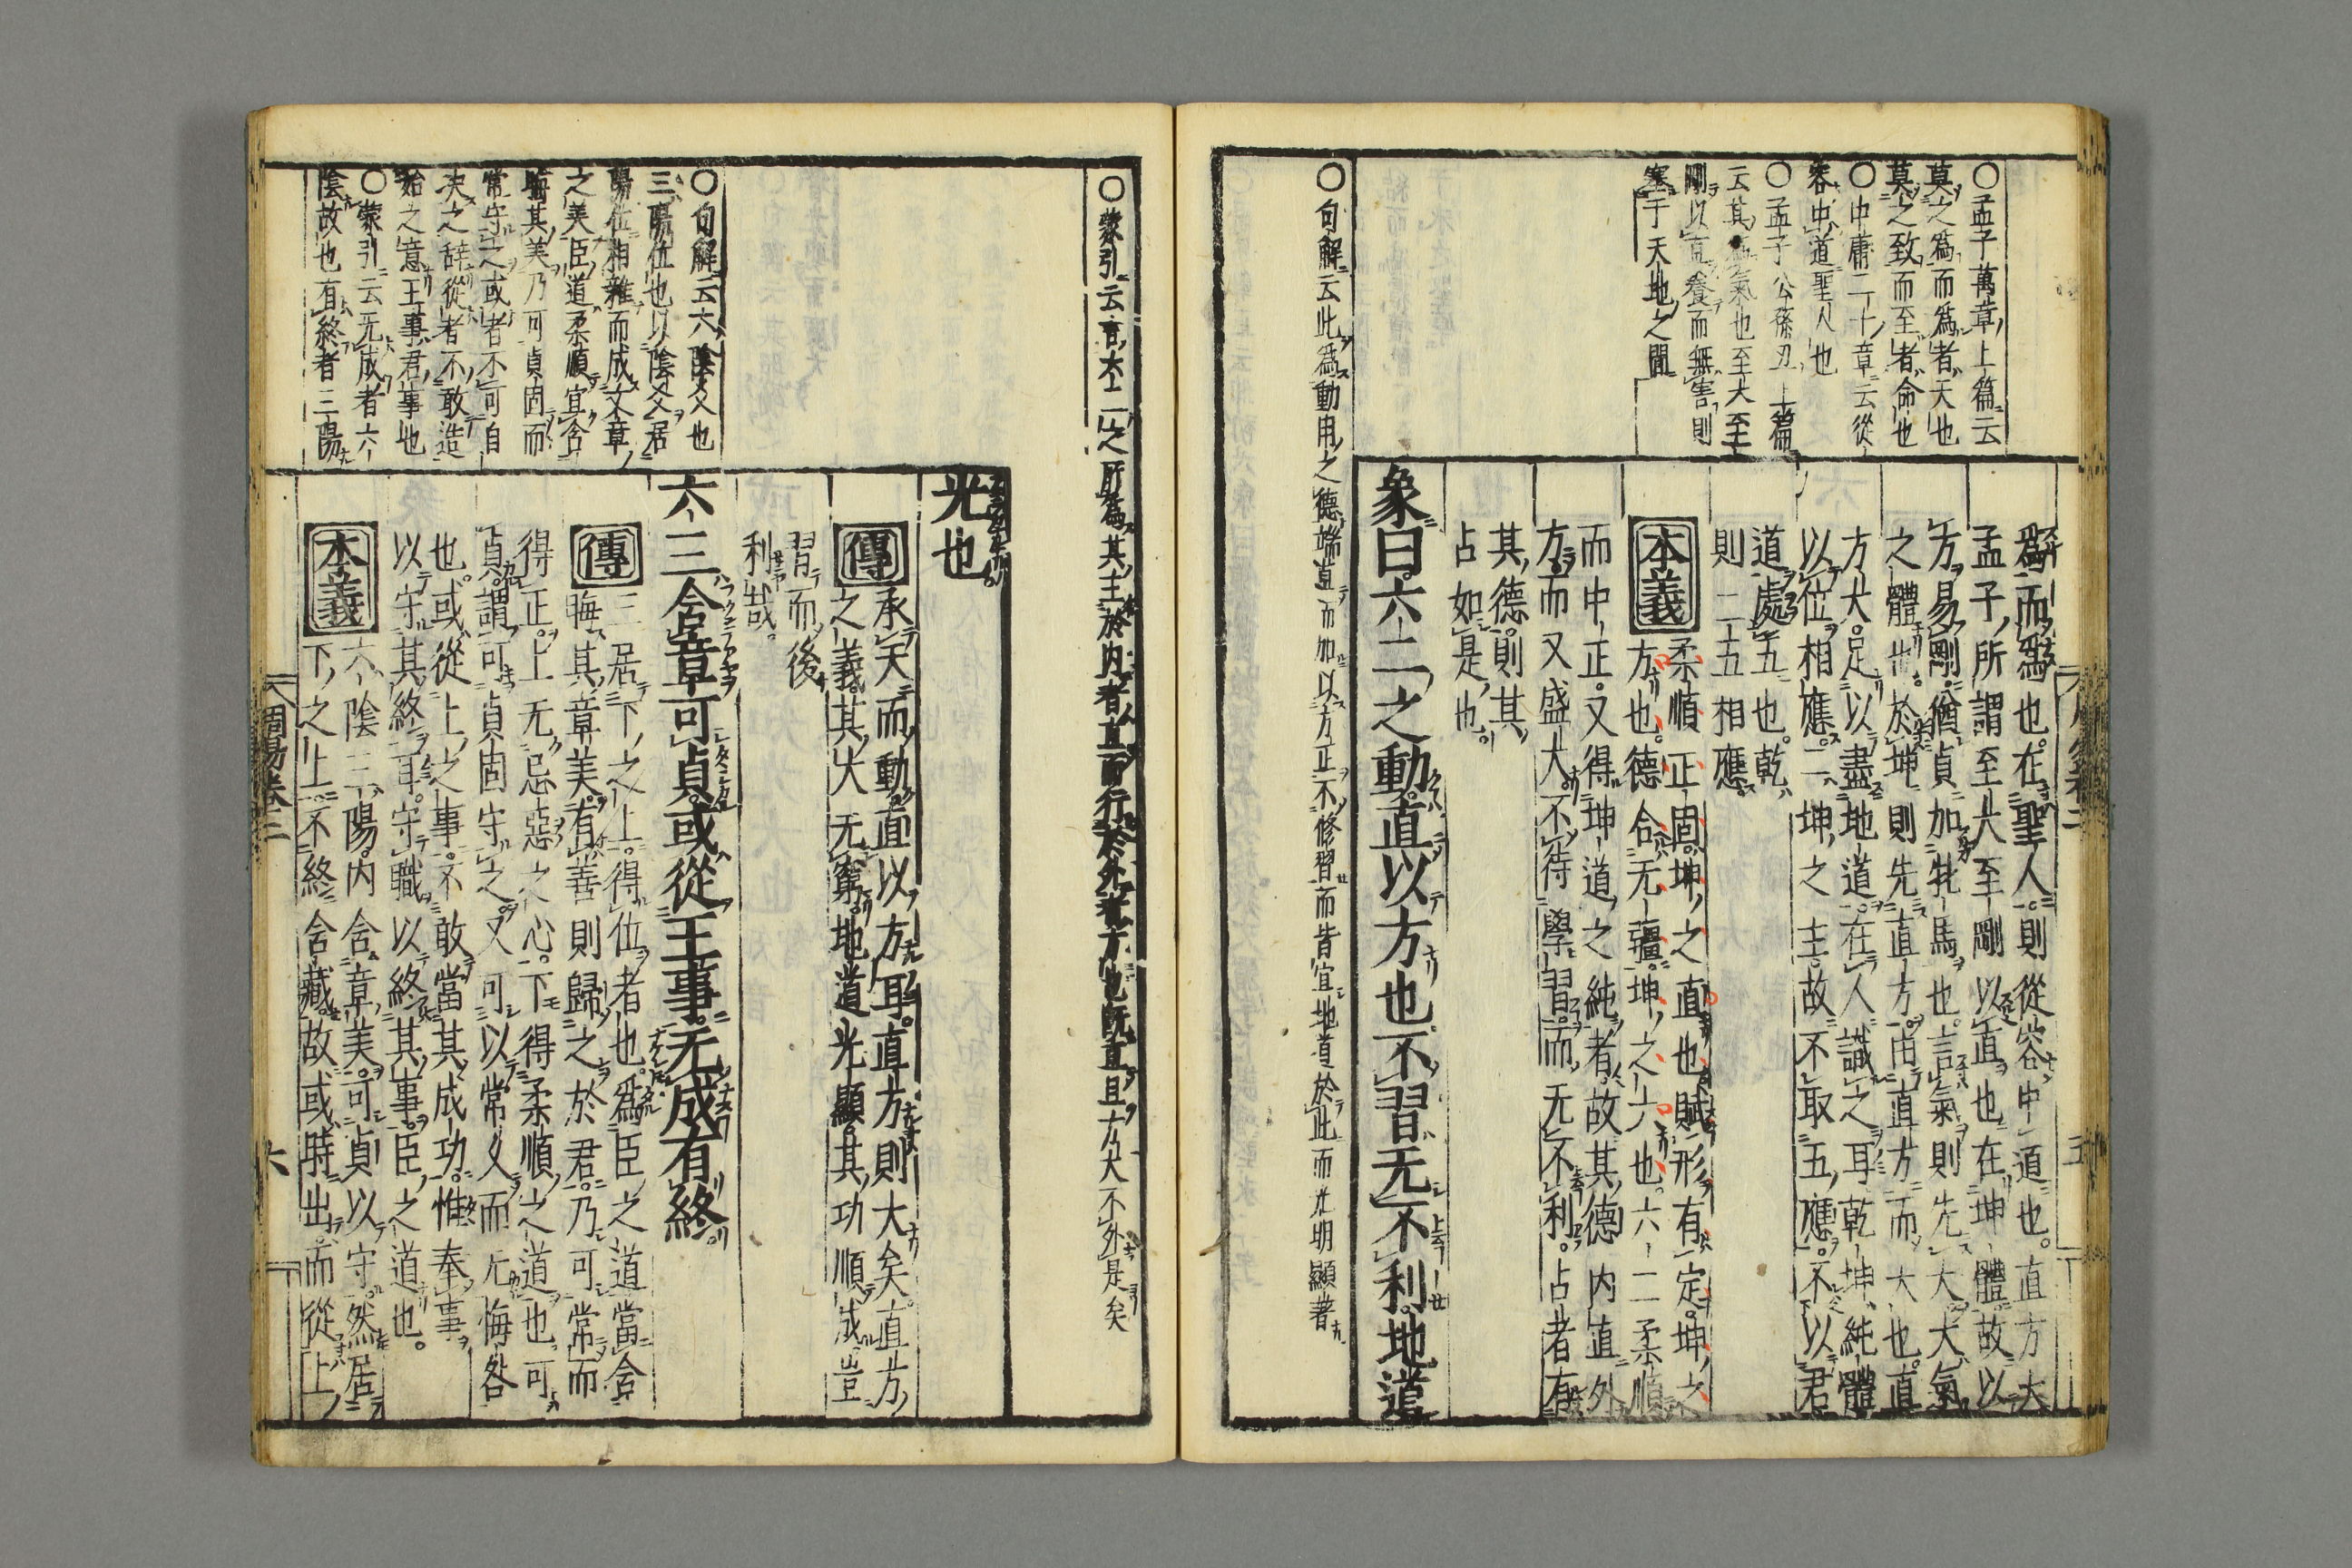 ○孟子萬章上篇云
莫之爲而爲者天也
莫之致而至者命也
○中庸二十章云從
容中道聖人也
○孟子公孫丑上篇
云其爲氣也至大至
剛以直養而無害則
塞于天地之間
爲而爲也。在聖人。則從容中道也。直方大
孟子所謂至大至剛以直也在坤體。故以
方易剛。猶貞加牝馬也。言氣則先大。大氣
之體也。於坤則先直方。由直方而大也。直
方大。足以盡地道。在人識之耳乾坤純體
以位相應。二坤之主。故不取五應。不以君
道處五也。乾
則二五相應。
本義
柔順正固。坤之直也賦形有定。坤之
方也。德合无疆。坤之大也。六二柔順
而中正。又得坤道之純者。故其德内直外
方。而又盛大。不待學習。而无不利。占者有
其德。則其
占如是也。
象曰。六二之動。直以方也。不習无不利。地道
○句解云此爲動用之德端直而加以方正不修習而皆宜地道於此而光明顯著
○蒙引云言六二之所爲其主於内者直而行於外者方也既直且方大不外是矣
光也
傳
承天而動。直以方耳。直方則大矣。直方
之義。其大无窮。地道光顯。其功順成豈
習而後
利哉。
六三含章可貞。或從王事。无成有終
傳
三居下之上。得位者也。爲臣之道當含
晦其章美。有善則歸之於君。乃可常而
得正。上无忌惡之心。下得柔順之道也可
貞。謂可貞固守之。又可以常久而无悔咎
也。或從上之事。不敢當其成功。惟奉事
以守其終耳。守職以終其事。臣之道也。
本義
六陰三陽。内含章美。可貞以守。然居
下之上。不終含藏。故或時出。而從上
○句解云六陰爻也
三陽位也以陰爻居
陽位相雜而成文章
之美臣道柔順宜含
晦其美乃可貞固而
常守之或者不可自
決之辞從者不敢造
始之意王事君事也
○蒙引云无成者六
陰故也有終者三陽
周易卷二
六
五